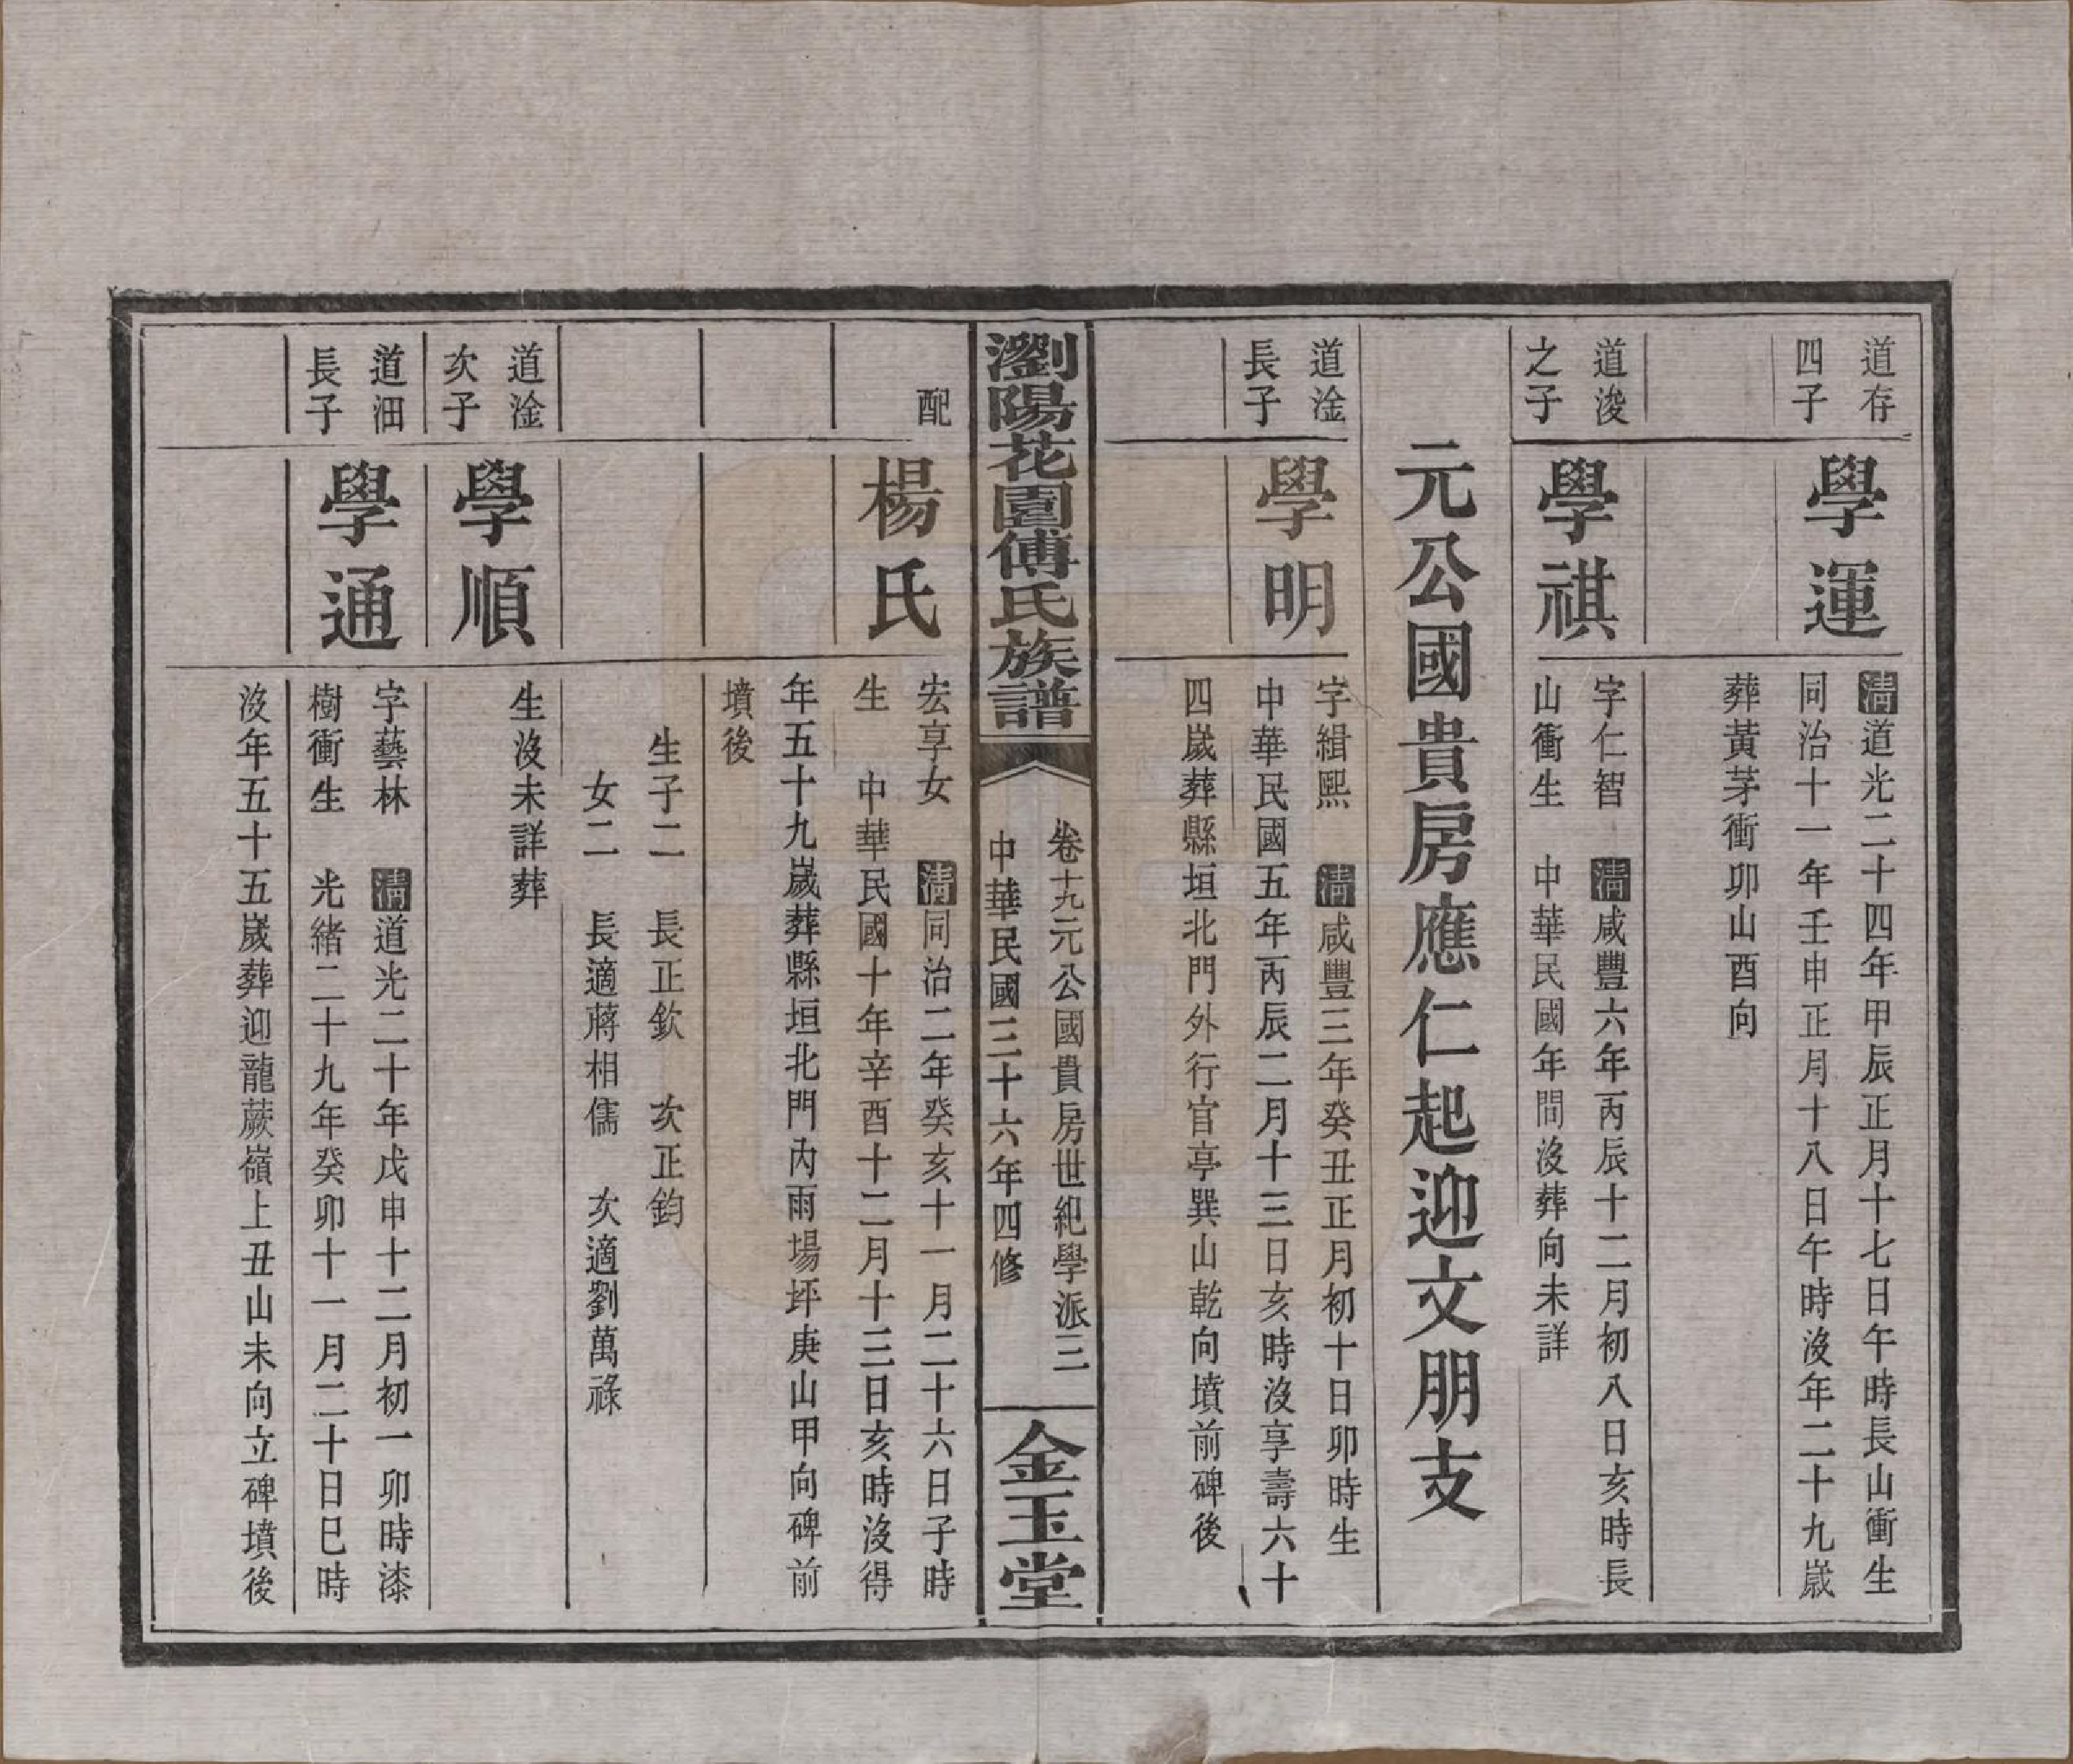 道存
四子
學運
清道光二十四年甲辰正月十七日午時長山衝生
同治十一年壬申正月十八日午時沒年二十九歲
葬黃茅衝卯山酉向
道浚
之子
學祺
字仁智　清咸豐六年丙辰十二月初八日亥時長
山衝生　中華民國年間沒葬向未詳
元公國貴房應仁起迎文朋支
道淦
長子
學明
字緝熙　清咸豐三年癸丑正月初十日卯時生
中華民國五年丙辰二月十三日亥時沒享壽六十
四歲葬縣垣北門外行官亭巽山乾向墳前碑後
瀏陽花園傅氏族譜
卷十九元公國貴房世紀學派三
中華民國三十六年四修
金玉堂
配
楊氏
宏享女　清同治二年癸亥十一月二十六日子時
生　中華民國十年辛酉十二月十三日亥時沒得
年五十九歲葬縣垣北門內雨場坪庚山甲向碑前
墳後
生子二　長正欽　次正鈞
女二　長適蔣相儒　次適劉萬祿
道淦
次子
學順
生沒未詳葬
道沺
長子
學通
字藝林　清道光二十年戊申十二月初一卯時漆
樹衝生　光緒二十九年癸卯十一月二十日巳時
沒年五十五歲葬迎龍蕨嶺上丑山未向立碑墳後